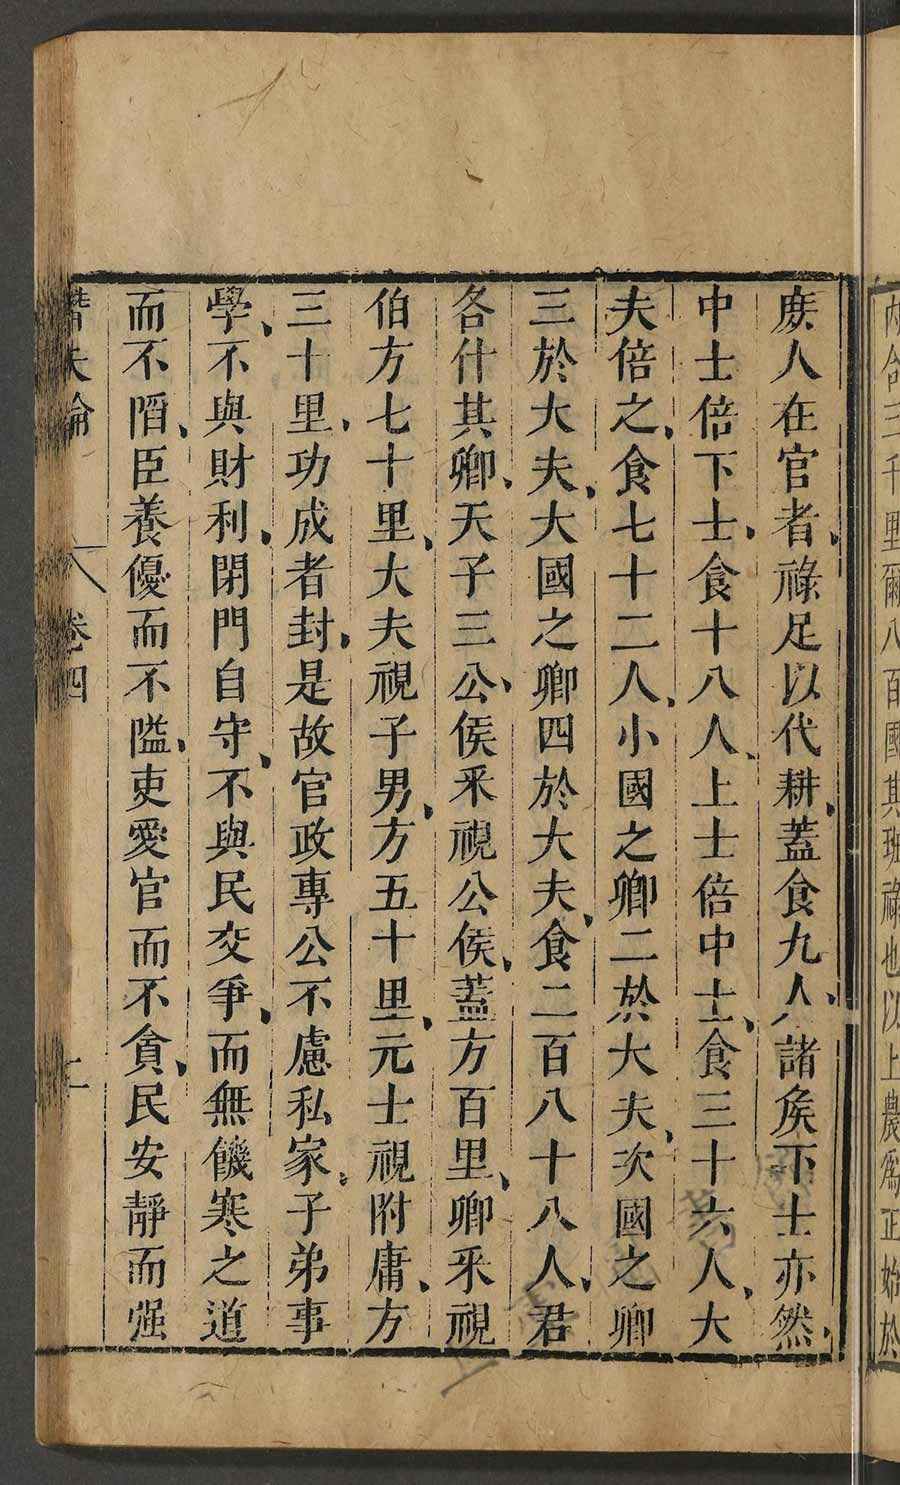 內合三千里爾八百國其班祿也以上農爲正始於
庻人在官者祿足以代耕蓋食九人諸矦下士亦然
中士倍下士食十八人上士倍中士食三十六人大
夫倍之食七十二人小國之卿二於大夫次國之卿
三於大夫大國之卿四於大夫食二百八十八人君
各什其卿天子三公侯采視公侯蓋方百里卿采視
伯方七十里大夫視子男方五十里元士視附庸方
三十里功成者封是故官政專公不慮私家子弟事
學不與財利閉門自守不與民交爭而無饑寒之道
而不䧟臣養優而不隘吏愛官而不貪民安靜而强
潛夫論 卷四 二